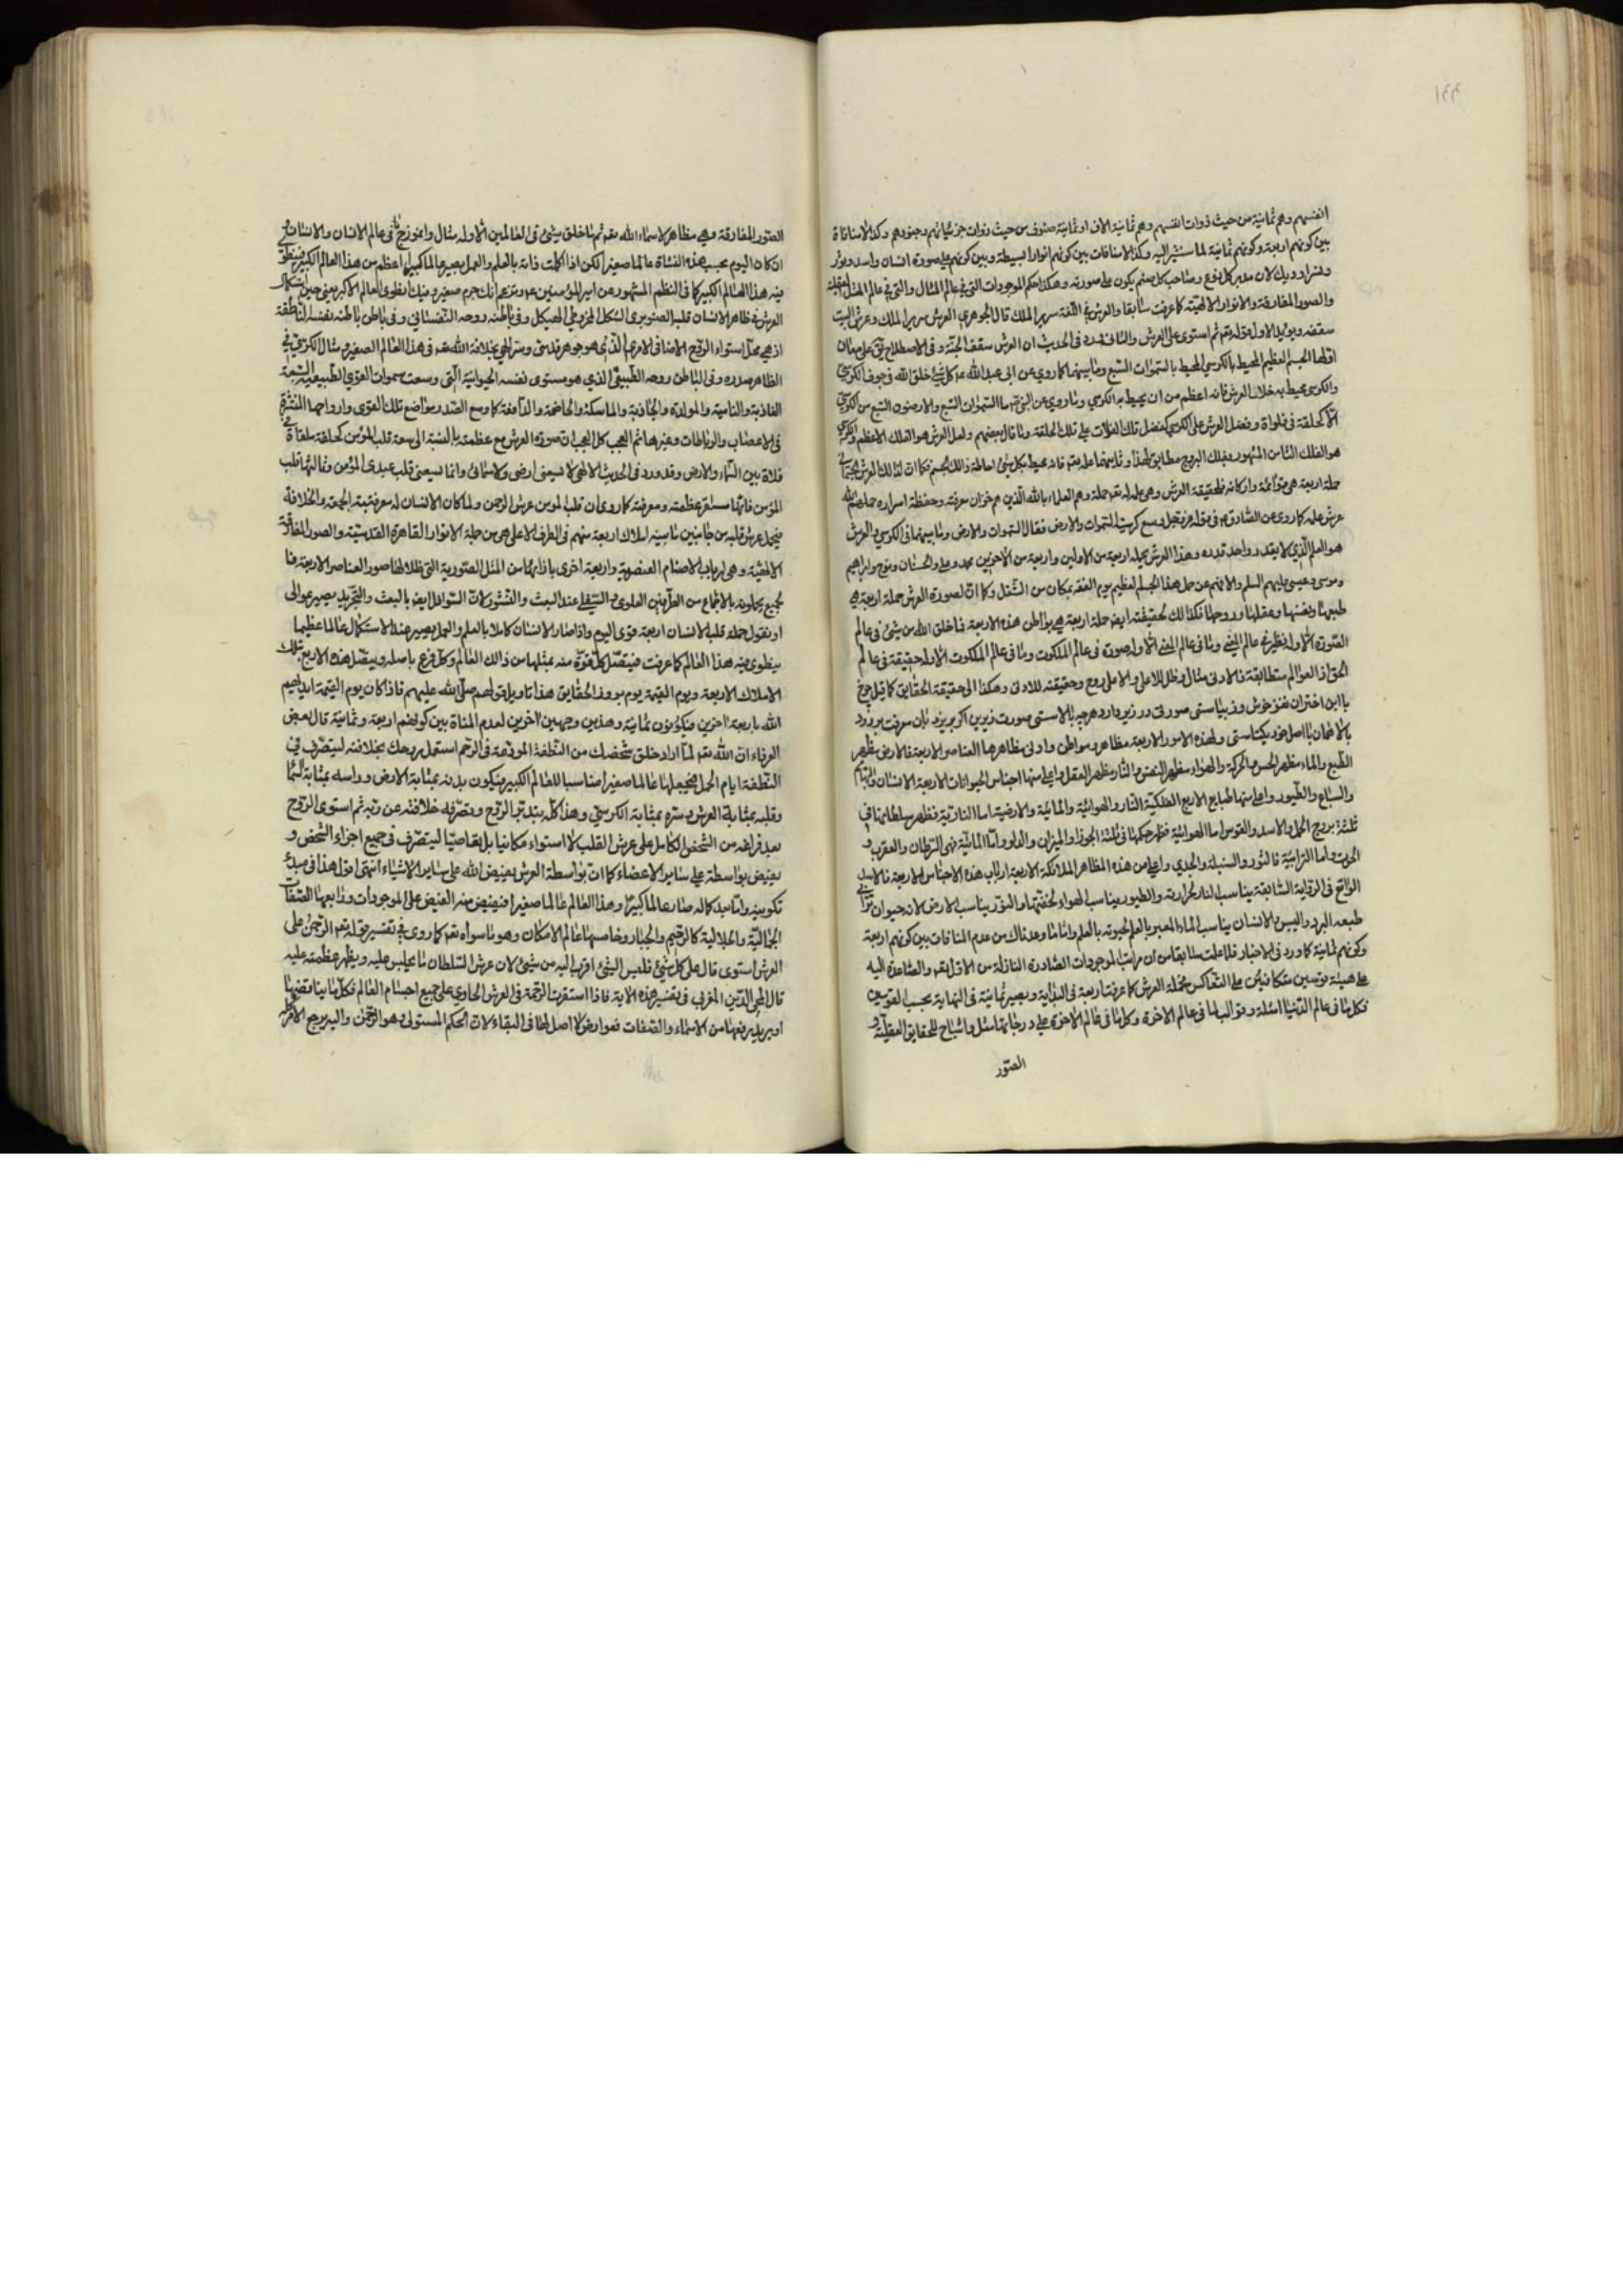 انفسهم وهم ثمانية من حيث ذوات انفسهم وهم ثمانية الاف او ثمانية صفوف من حيث ذوات جزئياتهم وجنودهم وكذا لا منافاة
بين كونهم اربعة وكونهم ثمانية لما سنشير اليه وكذا لا منافات بين كونهم انوارا بسيطة وبين كونهم على صورة انسان واسد وثور
ونسر او ديك لان مدبر كل نوع وصاحب كل صنم يكون على صورته وهكذا حكم الموجودات التي في عالم المثال والتي في عالم المثل
والصور المفارقة والانوار الالهية كما عرفت سابقا والعرش في اللغة سرير الملك قال الجوهري العرش سرير الملك وعرش البيت
سقفه ويؤيد الاول قوله تع ثم استوى على العرش والثاني ورد في الحديث ان العرش سقف الجنة وفي الاصطلاح على معان
اولها الجسم العظيم المحيط بالكرسي المحيط بالسموات السبع وما بينهما كما روي عن ابي عبد الله ع كل شئ خلق الله في جوف الكرسي
والكرسي محيط به خلا العرش فانه اعظم من ان يحيط به الكرسي وما روي عن النبي ص ما السموات السبع والارضون السبع من الكرسي
الا كحلقة في فلاة وفضل العرش على الكرسي كفضل تلك الفلات على تلك الحلقة وما قال بعضهم ولعل العرش هو الفلك الاعظم والكرسي
هو الفلك الثامن المشهور بفلك البروج مطابق لهذا وثانيها علمه تع فانه محيط بكل شئ احاطة ذلك الجسم فكما ان لذلك العرش الجسماني
حملة اربعة هي قوائمه واركانه فلحقيقة العرش وهي علمه تع حملة وهم العلماء بالله الذين هم خزان معرفته وحفظة اسراره حملهم الله
عرش علمه كما روي عن الصادق ع في قوله عز وجل وسع كرسيه السموات والارض فقال السموات والارض وما بينهما في الكرسي والعرش
هو العلم الذي لا يقدر احد قدره وهذا العرش يحمله اربعة من الاولين واربعة من الاخرين محمد وعلي والحسنان ونوح وابراهيم
وموسى وعيسى عليهم السلم والا فهم عن حمل هذا الجسم العظيم يوم القيمة بمكان من الشغل وكما ان لصورة العرش حملة اربعة هي
طبعها ونفسها وعقلها وروحها فكذلك لحقيقته ايض حملة اربعة هي بواطن هذه الاربعة فما خلق الله من شئ في عالم
الصورة الا وله نظير في عالم المعنى وما في عالم المعنى الا وله صورة في عالم الملكوت وما في عالم الملكوت الا وله حقيقة في عالم
الحق اذ العوالم متطابقة فالادنى مثال وظل للاعلى والاعلى روح وحقيقة للادنى وهكذا الى حقيقة الحقايق كما قيل چرخ
با اين اختران نغز خوش وزيباستى صورتى در زير دارد هر چه بالاستى صورت زيرين اكر بر نردبان معرفت بر رود
بالا همان با اصل خود يكتاستى ولهذه الامور الاربعة مظاهر ومواطن وادنى مظاهرها العناصر الاربعة فالارض مظهر
الطبع والماء مظهر الحس والحركة والهواء مظهر النفس والنار مظهر العقل واعلى منها اجناس الحيوانات الاربعة الانسان والبهائم
والسباع والطيور واعلى منها طبايع الاربع الفلكية النار والهوائية والمائية والارضية اما النارية فظهر سلطانها في
ثلثة بروج الحمل والاسد والقوس اما الهوائية فظهر حكمها في ثلثة الجوزا والميزان والدلو واما المائية فهي السرطان والعقرب و
الحوت واما الترابية فالثور والسنبلة والجدي واعلى من هذه المظاهر الملائكة الاربعة ارباب هذه الاجناس الاربعة فالاسد
الواقع في الرواية السابقة يناسب النار لحرارته والطيور يناسب الهواء لخفتها والثور يناسب الارض لانه حيوان ترابي
طبعه البرد واليبس والانسان يناسب الماء المعبر بالعلم لحيوته بالعلم واما ما وعدناك من عدم المنافات بين كونهم اربعة
وكونهم ثمانية كما ورد في الاخبار فلما علمت سابقا من ان مراتب الموجودات الصادرة النازلة من الاول تع والصاعدة اليه
على هيئة قوسين متكافئين على التعاكس فحملة العرش كما عرفت اربعة في البداية ويصير ثمانية في النهاية بحسب القوسين
فكل ما في عالم الدنيا امثلة وقوالب لما في عالم الاخرة وكل ما في عالم الاخرة على درجاتها مثل واشباح للحقايق العقلية و
الصور
الصور المفارقة وهي مظاهر لاسماء الله تع ثم ما خلق شئ في العالمين الا وله مثال وانموذج في عالم الانسان والانسان
ان كان اليوم بحسب هذه النشاة عالما صغيرا لكن اذا كملت ذاته بالعلم والعمل يصير عالما كبيرا اعظم من هذا العالم الكبير فينطوي
فيه هذا العالم الكبير كما في النظم المشهور عن امير المؤمنين ع وتزعم انك جرم صغير وفيك انطوى العالم الاكبر يعني حين استكمال
العرش في ظاهر الانسان قلبه الصنوبري الشكل المخروطي الهيكل وفي باطنه روحه النفساني وفي باطن باطنه نفسه الناطقة
اذ هي محل استواء الروح الاضافي الامري الذي هو جوهر قدسي وسر الهي بخلافة الله تع في هذا العالم الصغير ومثال الكرسي في
الظاهر صدره وفي الباطن روحه الطبيعي الذي هو مستوى نفسه الحيوانية التي وسعت سموات القوى الطبيعية السبعة
الغاذية والنامية والمولدة والجاذبة والماسكة والهاضمة والدافعة كما وسع الصدر مواضع تلك القوى وارواحها المنتشرة
في الاعصاب والرباطات وغيرها ثم العجب كل العجب ان صورة العرش مع عظمته بالنسبة الى سعة قلب المؤمن كحلقة ملقاة في
فلاة بين السماء والارض وقد ورد في الحديث الالهي لا يسعني ارضي ولا سمائي وانما يسعني قلب عبدى المؤمن وثالثها قلب
المؤمن فانها مستقر عظمته ومعرفته كما روى ان قلب المومن عرش الرحمن ولما كان الانسان له مرتبة الجمعية والخلافة
فيحمل عرش قلبه من جانبين ثمانية املاك اربعة منهم في الطرف الاعلى هي من حملة الانوار القاهرة القدسية والصور المفارقة
الالهية وهي ارباب الاصنام العنصرية واربعة اخرى باذائها من المثل الصورية التي ظلالها صور العناصر الاربعة فا
لجميع يحملونه بالاجتماع من الطرفين العلوي والسفلي عند البعث والنشور لان السوافل ايض بالبعث والتجريد يصير عوالى
او نقول حملة قلب الانسان اربعة قوى اليوم واذا صار الانسان كاملا بالعلم والعمل يصير عند الاستكمال عالما عظيما
ينطوي فيه هذا العالم كما عرفت فيتصل كل قوة منه بمثلها من ذلك العالم وكل فرع باصله ويتصل هذه الاربع بتلك
الاملاك الاربعة ويوم القيمة يوم بروز الحقايق هذا تاويل قولهم صلى الله عليهم فاذا كان يوم القيمة ايدهم
الله باربعة اخرين فيكونون ثمانية وهذين وجهين اخرين لعدم المنافاة بين كونهم اربعة وثمانية قال بعض
العرفاء ان الله تع لما اراد خلق شخصك من النطفة المودعة في الرحم استعمل روحك بخلافته ليتصرف في
النطفة ايام الحمل فيجعلها عالما صغيرا مناسبا للعالم الكبير فيكون بدنه بمثابة الارض وراسه بمثابة السماء
وقلبه بمثابة العرش وسره بمثابة الكرسي وهذا كله بتدبير الروح وتصرفه خلافة عن ربه ثم استوى الروح
بعد فراغه من الشخص الكامل على عرش القلب لا استواء مكانيا بل اختصاصيا ليتصرف في جميع اجزاء الشخص و
يفيض بواسطة على ساير الاعضاء كما ان بواسطة العرش يفيض الله على ساير الاشياء انتهى اقول هذا في مبدء
تكوينه واما بعد كماله صار عالما كبيرا وهذا العالم عالما صغيرا فيفيض منه الفيض على الموجودات ورابعها الصفات
الجمالية والجلالية كالرحيم والجبار وخامسها عالم الامكان وهو ما سواه تع كما روى في تفسير قوله تع الرحمن على
العرش استوى قال على كل شئ فليس شئ اقرب اليه من شئ لان عرش السلطان ما يجلس عليه ويظهر عظمته عليه
قال محي الدين المغربي في تفسير هذه الاية فاذا استقرت الرحمة في العرش الحاوي على جميع اجسام العالم فكل ما يناقضها
او يريد رفعها من الاسماء والصفات فعوارض لا اصل لها في البقاء لان الحكم للمستولي وهو الرحمن واليه يرجع الامر كله